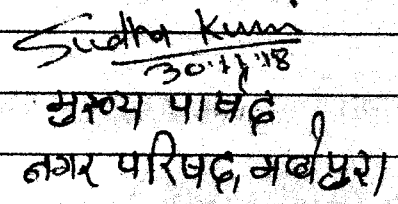 Sudha Kumi
30.11.18
मुख्य पार्षद
नगर परिषद, मधेपुरा